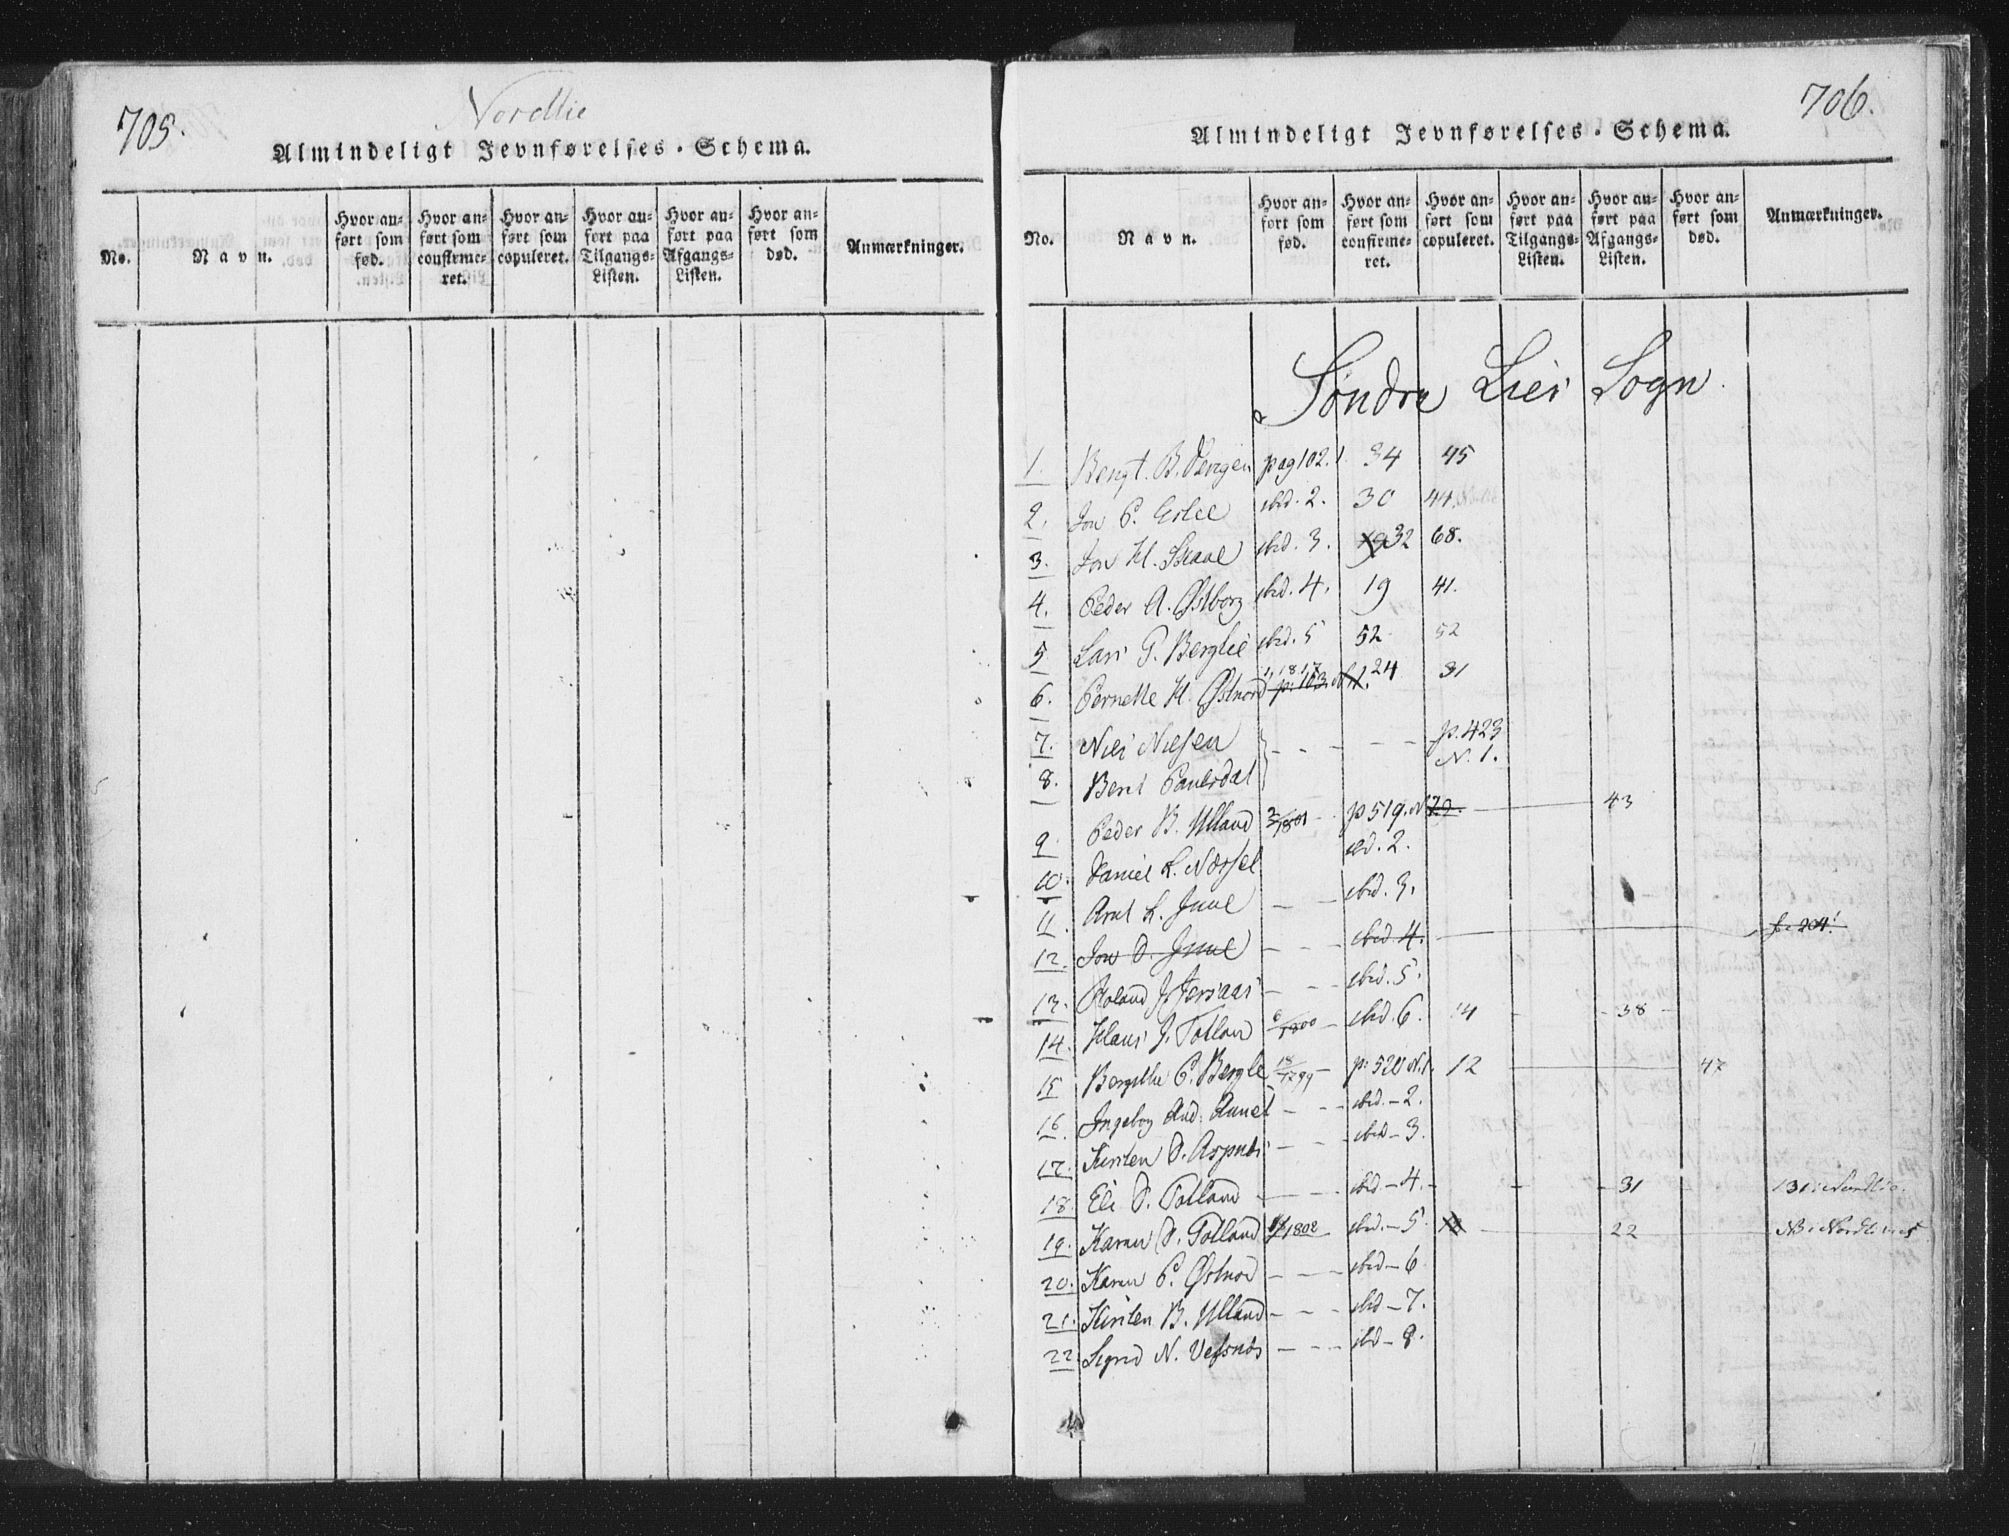 705.
Nordlie
Almindeligt Jevnførelses-Schema.
No. Navn. Hvor anført som fød. Hvor anført som confirmeret. Hvor anført som copuleret. Hvor anført paa Tilgangs-Listen. Hvor anført paa Afgangs-Listen. Hvor anført som død. Anmærkninger.
706.
Almindeligt Jevnførelses-Schema.
No. Navn. Hvor anført som fød. Hvor anført som confirmeret. Hvor anført som copuleret. Hvor anført paa Tilgangs-Listen. Hvor anført paa Afgangs-Listen. Hvor anført som død. Anmærkninger.
Søndre Lies Sogn.
1. Bengt. B. pag 102. 1. 34 45
2. Jon P. ibid. 2. 30 44.
3. Jon H. ibid. 3. 32 68.
4. Peder A. Østborg ibid. 4. 19 41.
5 Lars P. Berglie ibid. 5 52 52
6. Pernelle H. Østnord 1, 1817 p. 103. N. 1. 24 31
7. Niels Nielsen p. 423
8. Berit N. 1.
9. Peder B. Ulland 2/1801 p 519. N. 43
10. Daniel L. ibd. 2.
11. Arnt L. Juul ibid. 3.
12. Jon O. Juul ibid 4. p. 204.
13. J. ibid. 5.
14. Hans J. Totland 6/1800 ibid. 6. 14 38
15 P. Bergli 18/1799 p. 520 N. 1. 12 47
16. Ingebor And. ibid. - 2.
17. Kirsten O. Aspnes ibid - 3.
18. Eli O. Totland ibid - 4. 31 131 i Nordlie.
19. Karen O. Totland 1802 ibid. - 5. 22 NB i Nordlie
20. Karen P. Østnor ibid - 6
21. Kirsten B. Ulland ibid - 7.
22. Sigrid N. ibd - 8.